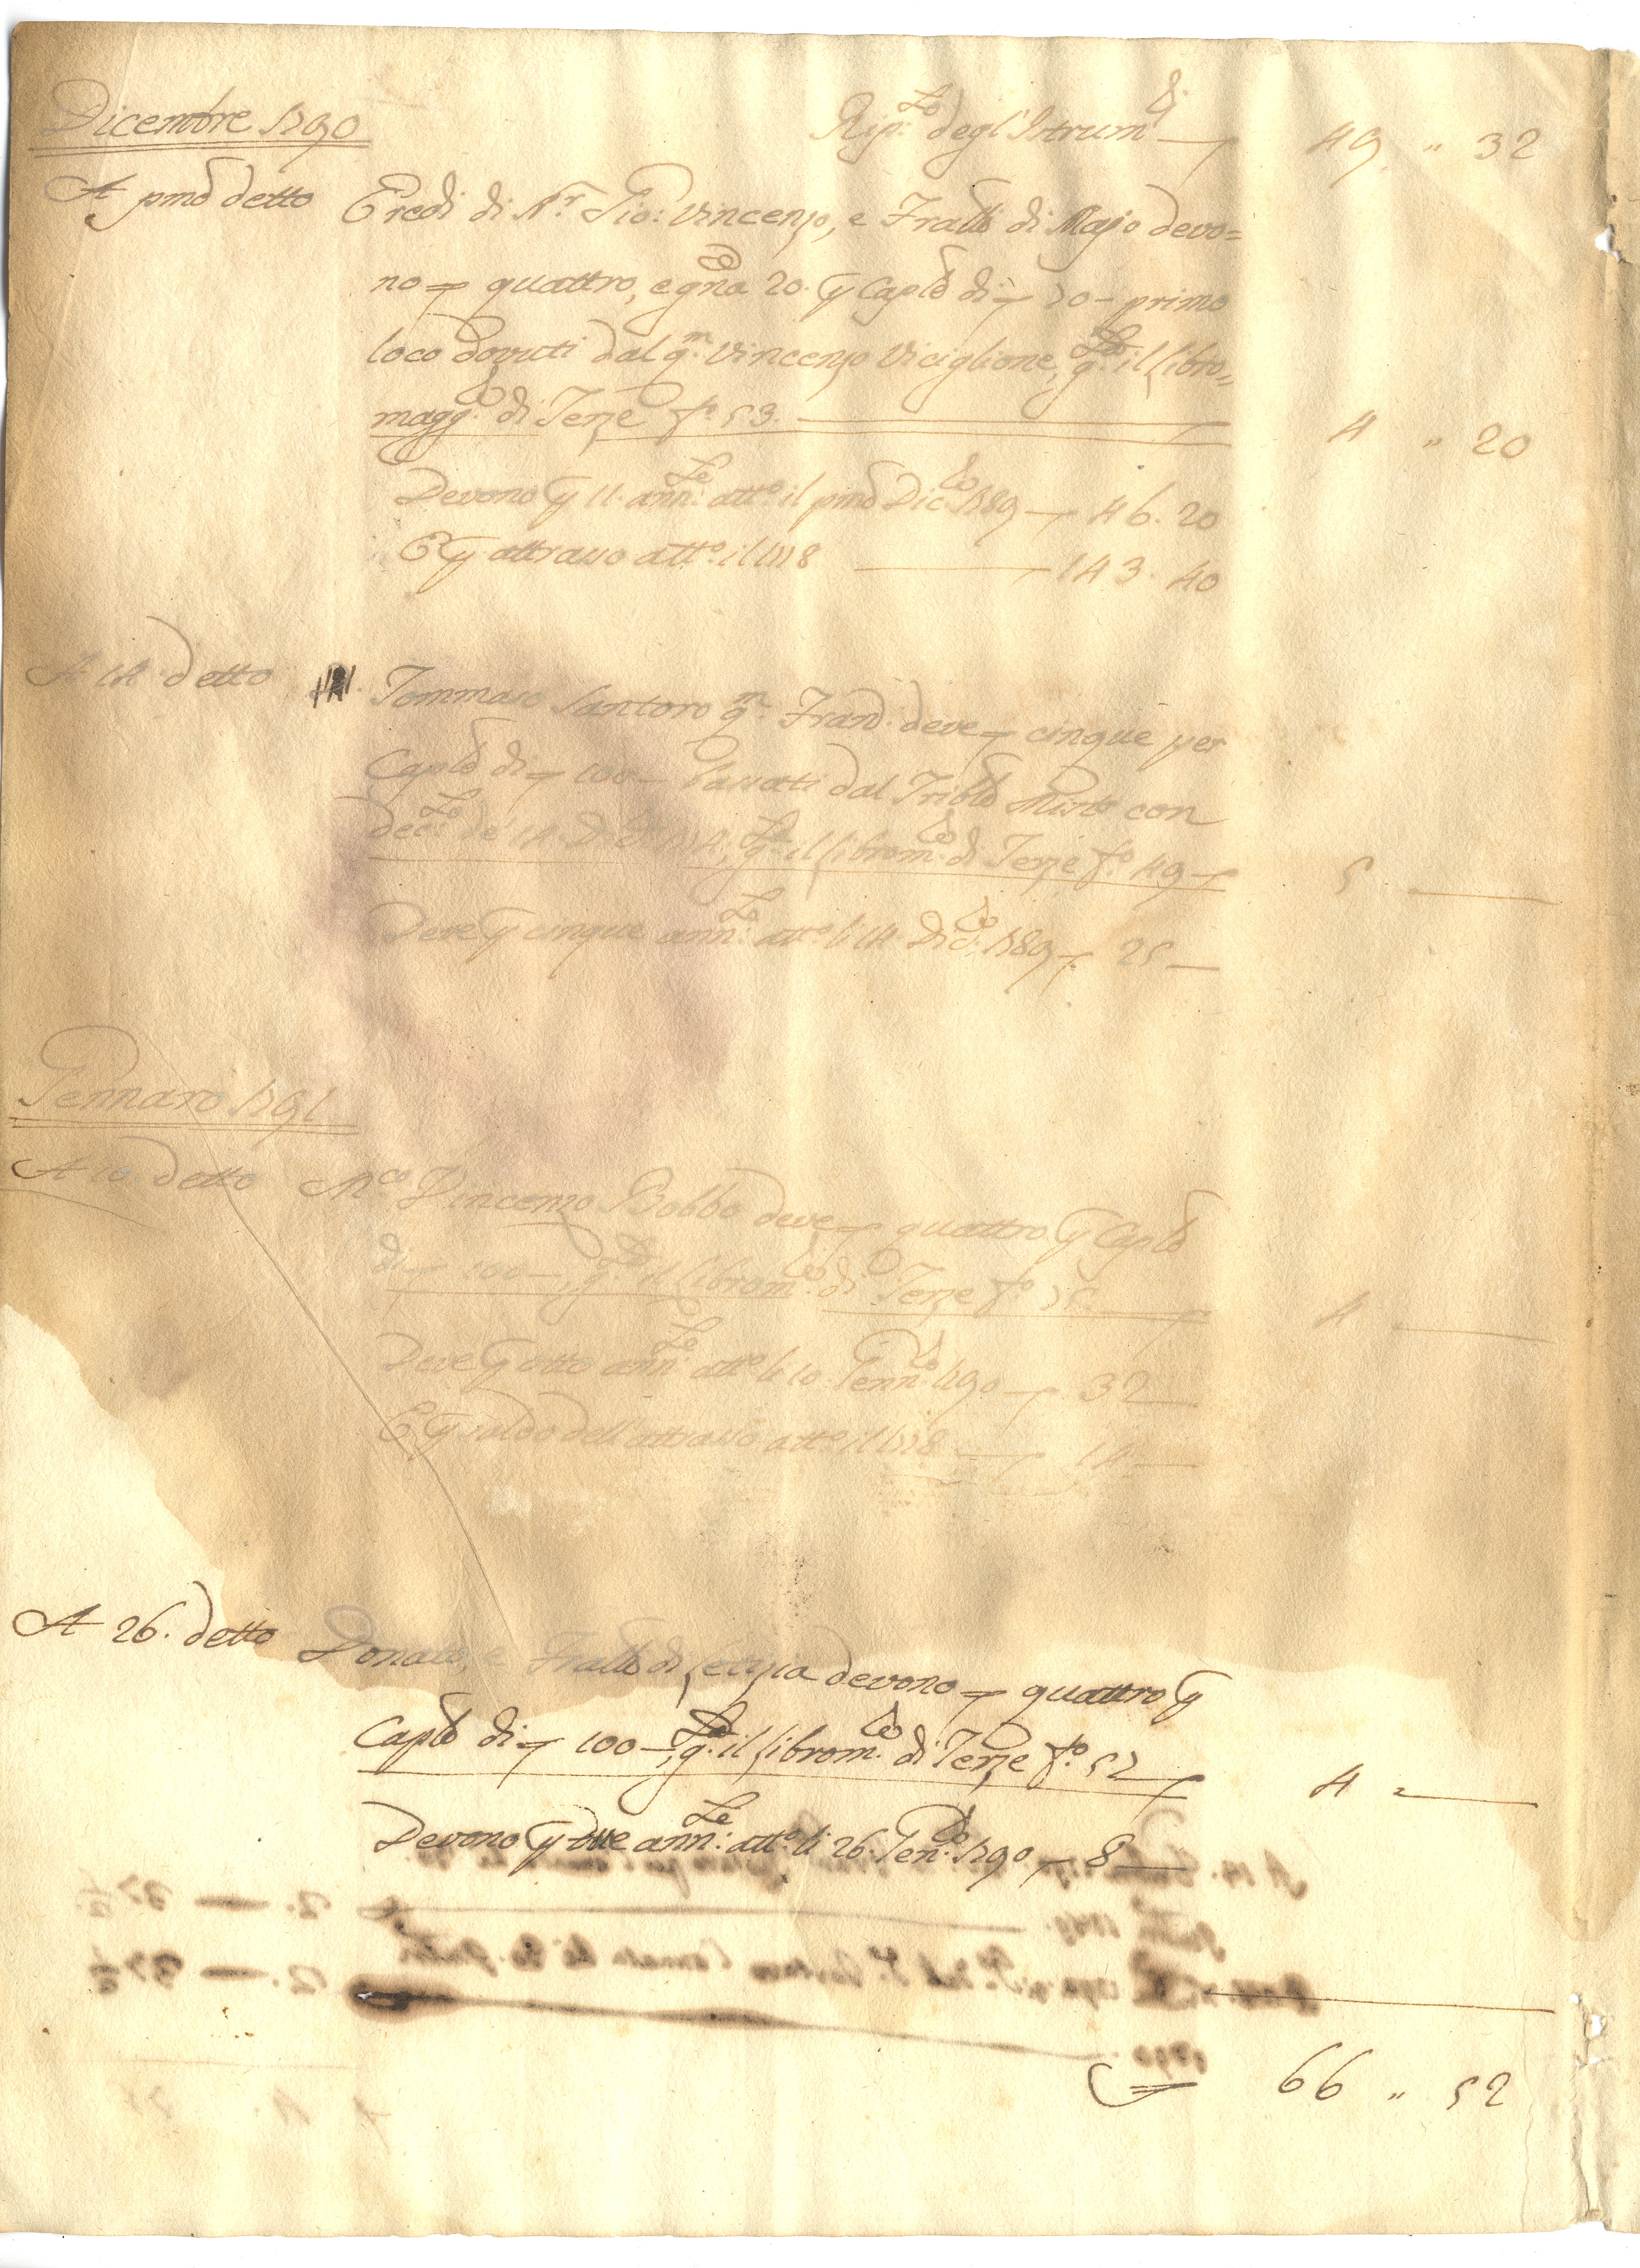 Dicembre 1790
Rip:to degl'Istrum:ti 49 " 32
A pmo detto Eredi di Nr. Gio: Vincenzo, e Fratelli di Majo devo=
no quattro, e gna 20. per Caple di 70 - primo
loco dovuti dal qm. Vincenzo Viciglione, q.to il libro=
magg.re di Terze fo. 53. 4 " 20
Devono per 11. ann:te att.e il pmo Dic.e 1789 46. 20
E per attrasso att.o il 1778 143. 40
A 14 detto Tommaso Santoro qm. deve cinque per
Caple di 100 - lassati dal con
de' 14. il librom.e di Terze fo. 49 5
Deve per cinque ann:te att.e li 14. Dic.e 1789 25
Gennaro 1791
A 10 detto M.co Vincenzo Bobbo deve quattro per Caple
di 100 -, q.to il librom.e di Terze fo. 4
Deve per otto ann:te att.e li 10. Genn.o 1790 32
E per saldo dell'attrasso att.o il 1778 14
A 26. detto Donato, e Fratelli di devono quattro per
Caple di 100 -, q.to il librom.e di Terze fo. 52 4
Devono per due ann:te att.e li 26. Gen.o 1790 8
66 " 52